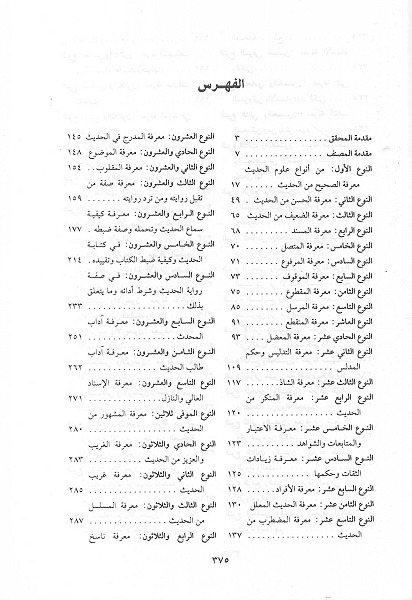 الفهرس
مقدمة المحقق ٣
مقدمة المصنف ٧
النوع الأول: من أنواع علوم الحديث
معرفة الصحيح من الحديث ١٧
النوع الثاني: معرفة الحسن من الحديث ٤٩
النوع الثالث: معرفة الضعيف من الحديث ٦٥
النوع الرابع: معرفة المسند ٦٨
النوع الخامس: معرفة المتصل ٧٠
النوع السادس: معرفة المرفوع ٧١
النوع السابع: معرفة الموقوف ٧٣
النوع الثامن: معرفة المقطوع ٧٥
النوع التاسع: معرفة المرسل ٨٥
النوع العاشر: معرفة المنقطع ٩١
النوع الحادي عشر: معرفة المعضل ٩٣
النوع الثاني عشر: معرفة التدليس وحكم
المدلس ١٠٩
النوع الثالث عشر: معرفة الشاذ ١١٧
النوع الرابع عشر: معرفة المنكر من
الحديث ١٢٠
النوع الخامس عشر: معرفة الاعتبار
والمتابعات والشواهد ١٢٣
النوع السادس عشر: معرفة زيادات
الثقات وحكمها ١٢٥
النوع السابع عشر: معرفة الأفراد ١٢٨
النوع الثامن عشر: معرفة الحديث المعلل ١٣٠
النوع التاسع عشر: معرفة المضطرب من
الحديث ١٣٧
النوع العشرون: معرفة المدرج في الحديث ١٤٥
النوع الحادي والعشرون: معرفة الموضوع ١٤٨
النوع الثاني والعشرون: معرفة المقلوب ١٥٤
النوع الثالث والعشرون: معرفة صفة من
تقبل روايته ومن ترد روايته ١٥٩
النوع الرابع والعشرون: معرفة كيفية
سماع الحديث وتحمله وصفة ضبطه ١٧٧
النوع الخامس والعشرون: في كتابة
الحديث وكيفية ضبط الكتاب وتقييده ٢١٤
النوع السادس والعشرون: في صفة
رواية الحديث وشرط أدائه وما يتعلق
بذلك ٢٣٣
النوع السابع والعشرون: معرفة آداب
المحدث ٢٥١
النوع الثامن والعشرون: معرفة آداب
طالب الحديث ٢٦٢
النوع التاسع والعشرون: معرفة الإسناد
العالي والنازل ٢٧١
النوع الموفى ثلاثين: معرفة المشهور من
الحديث ٢٨٠
النوع الحادي والثلاثون: معرفة الغريب
والعزيز من الحديث ٢٨٣
النوع الثاني والثلاثون: معرفة غريب
الحديث ٢٨٥
النوع الثالث والثلاثون: معرفة المسلسل
من الحديث ٢٨٧
النوع الرابع والثلاثون: معرفة ناسخ
٣٧٥